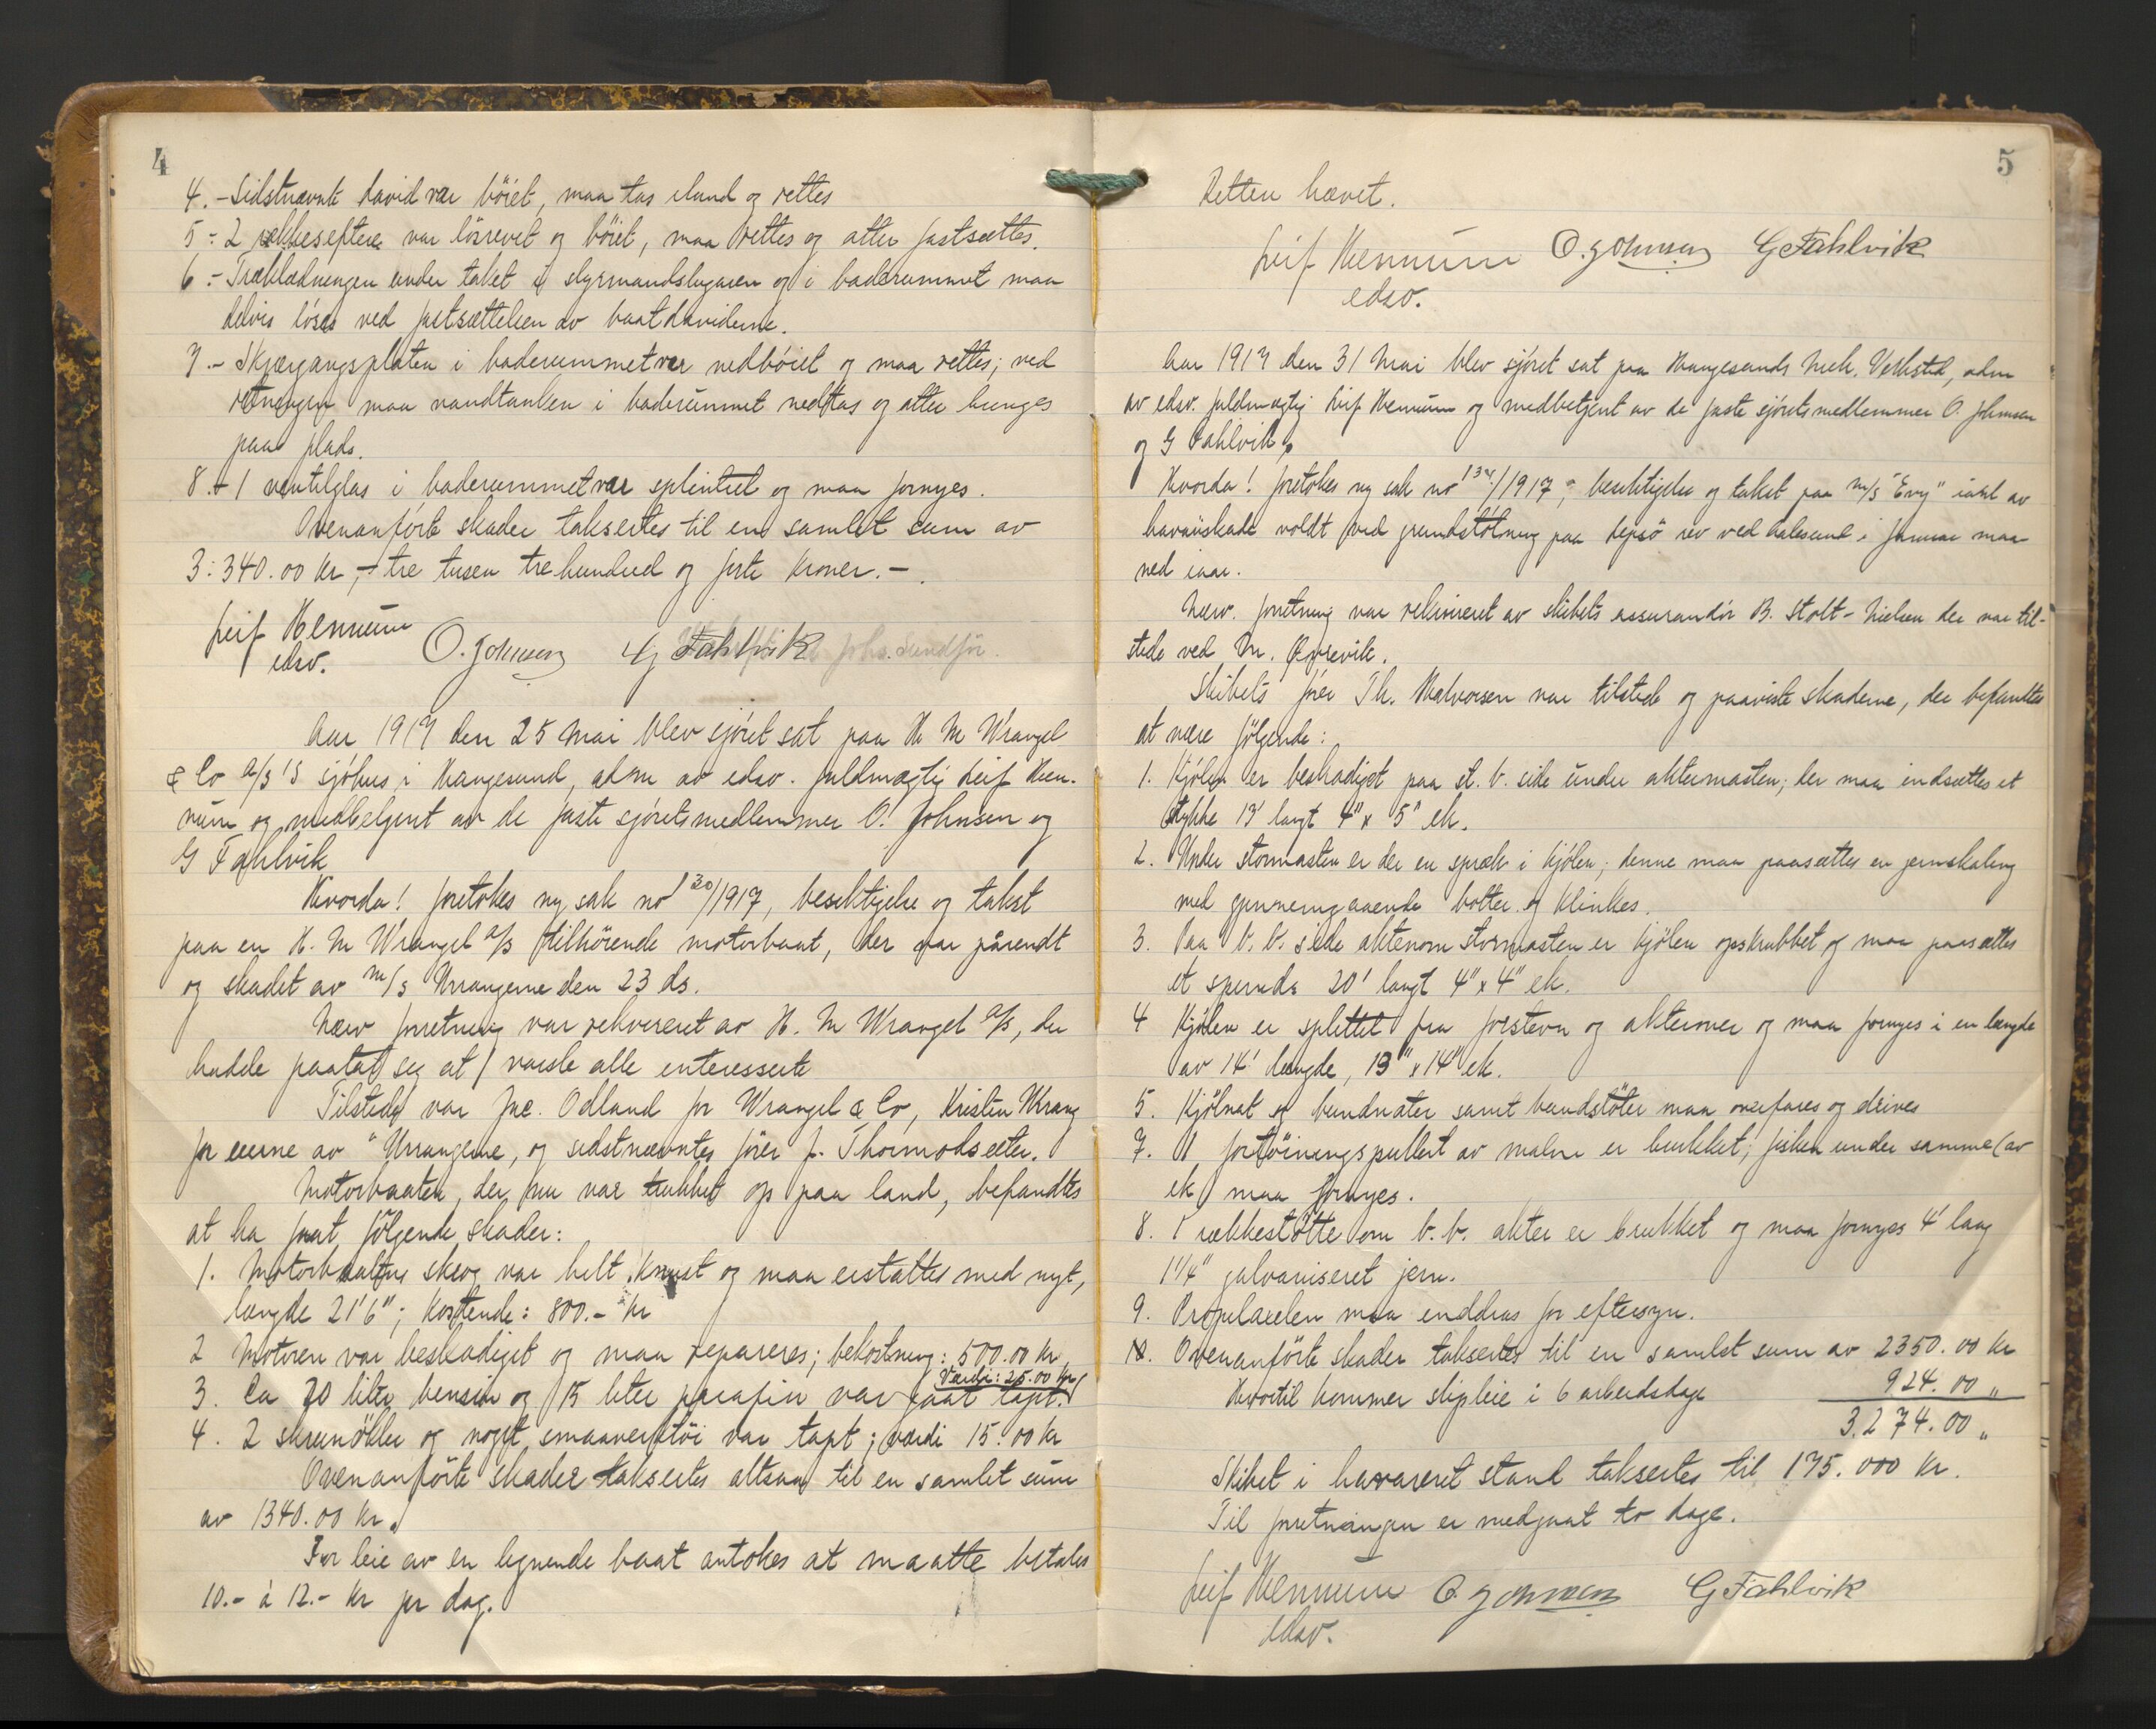 4
4. - Sidstnævnte david var böiet, maa tas iland og rettes
5 - 2 rækkesceptere var lösrevet og böiet, maa rettes og atter fastsættes.
6 - Træklædningen under taket i styrmandslugaren og i baderummet maa
delvis löses ved fastsættelsen av baatdaviderne.
7 - Skjærgangsplaten i baderummet var nedböiet og maa rettes; ved
retningen maa vandtanken i baderummet nedtas og atter henges
paa plads.
8. - 1 ventilglas i baderummet var splintret og maa fornyes.
Ovenanförte skader taksertes til en samlet sum av
3:340.00 kr, - tre tusen trehundred og förti kroner. -
Leif Hennum O. Johnsen G Fahlvik Johs. Sundför.
edsv.
Aar 1917 den 25 mai blev sjöret sat paa H M Wrangel
& Co a/s's sjöhus i Haugesund, adm av edsv. fuldmægtig Leif Hen-
num og medbetjent av de faste sjöretsmedlemmer O. Johnsen og
G Fahlvik
Hvorda! foretokes ny sak no 30/1917, besiktigelse og takst
paa en H. M Wrangel a/s tilhörende motorbaat, der var pårendt
og skadet av m/s Vrangerne den 23 ds.
Nærv forretning var rekvireret av H. M Wrangel a/s, der
hadde paatat seg at varsle alle interesserte
Tilstede var Jac. Odland for Wrangel & Co, Kristen Vrang
for eierne av "Vrangerne, og sidstnævntes förer J. Thormodsæter.
Motorbaaten, der nu var trukket op paa land, befandtes
at ha faat fölgende skader:
1. Motorbaatens skrog var helt knust og maa erstattes med nyt,
længde 21'6"; Kostende: 800.- kr
2 Motoren var beskadiget og maa repareres; bekostning: 500.00 kr
Værdi: 25.00 kr
3. Ca 70 liter bensin og 15 liter parafin var gaat tapt.
4. 2 skrunökler og noget smaaverktöi var tapt; værdi 15.00 kr
Ovenanförte skader taksertes altsaa til en samlet sum
av 1340.00 kr.
For leie av en lignende baat antokes at maatte betales
10.- à 12.- kr pr dag.
5
Retten hævet.
Leif Hennum O. Johnsen G Fahlvik
edsv.
Aar 1917 den 31 mai blev sjöret sat paa Haugesunds mek. Verksted, adm
av edsv. fuldmægtig Leif Hennum og medbetjent av de faste sjöretsmedlemmer O. Johnsen
og G Fahlvik
Hvorda! foretokes ny sak no 134/1917, besiktigelse og takst paa m/s "Evy" ianl av
havariskade voldt ved grundstötning paa Lepsö rev ved Aalesund i januar maa-
ned iaar.
Nærv. forretning var rekvireret av skibets assurandör B. Stolt-Nielsen der var til-
stede ved M. Qvrevik.
Skibets förer Th. Halvorsen var tilstede og paaviste skaderne, der befandtes
at være fölgende:
1. Kjölen er beskadiget paa st. b. side under aktermasten; der maa indsættes et
stykke 13' langt 4" x 5" ek.
2. Under stormasten er der en spræk i kjölen; denne maa paasættes en jernskaling
med gjennemgaaende bolter og klinkes.
3. Paa b. b. side aktenom stormasten er kjölen opskrubbet og maa paasættes
et spunds 20' langt 4" x 4" ek.
4 Kjölen er splittet fra forstevn og akterover og maa fornyes i en længde
av 14' længde, 13" x 14" ek.
5. Kjölnat og bundnater samt bundstöter maa overfares og drives
7. 1 fortöiningspullert av malm er brukket; fisken under samme (av
ek) maa fornyes.
8. 1 rækkestötte om b. b. akter er brukket og maa fornyes 4' lang
1 1/4" galvaniseret jern.
9. Propelaxelen maa inddras for eftersyn.
10. Ovenanförte skader taksertes til en samlet sum av 2350.00 kr
Hvortil kommer slipleie i 6 arbeidsdage 924.00 "
3.274.00 "
Skibet i havareret stand taksertes til 175.000 kr.
Til forretningen er medgaat to dage.
Leif Hennum O. Johnsen G Fahlvik
edsv.